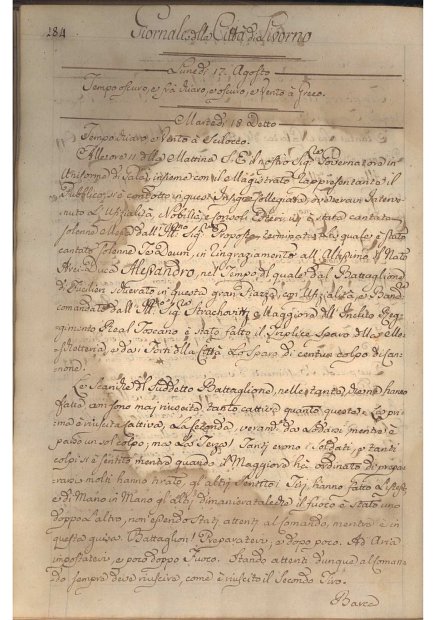 184
Giornale della Città di Livorno
Lunedì 17. Agosto
Tempo oscuro, e chiaro, e oscuro, e Vento à Greco.
Martedì 18 Detto
Tempo chiaro, e Vento à Scilocco.
Alle ore 11 della Mattina S. E. il nostro Sig. Governatore in
Uniforme di Gala, insieme con il Magistrato Rappresentante il
Pubblico, si è condotto in questa Insigne Collegiata, ove erano interve-
nuto l'Ufizialità, Nobiltà, e Consoli Esteri, vi è stata cantata
solenne dall' Ill. Sig. Proposto terminata la quale è stato
cantato solenne Te Deum, in ringraziamento all' Altissimo il Nato
Arci-Duca Alessandro, nel Tempo di quale dal Battaglione
di Fucilieri schierato in questa gran Piazza con Ufizialità, e Bande
comandato dall' Ill. Sig. Maggiore dell' Inclito Reg-
gimento Real Toscano è stato fatto il Triplice Sparo della
e da Forti della Città lo Sparo di cento colpo di Can-
none.
Le Scariche di suddetto Battaglione, nelle tante, che ne hanno
fatta anni sono mai riuscita tanto cattiva quanto questa. La pri-
ma è riuscita cattiva, la seconda, veramente mentre è
parso un sol colpo; ma la Terza Tanti erano i Soldati, e tanti
colpi si è sentito mentre quando il Maggiore hà ordinato di prepa-
rarsi molti hanno tirato, gl'altri Sentito i Tiri, hanno fatto lo stesso
e di Mano in Mano gl'altri di maniera tale che il fuoco è stato uno
doppo l'altro, non essendo stati attenti al comando, mentre è in
questa guisa. Battaglion! Preparatevi, e dopo poco. Ad Aria
impostatevi, e poco doppo Fuoco. Stando attenti dunque al Coman-
do sempre deve riuscire, come è riuscito il Secondo Tiro.
Barca